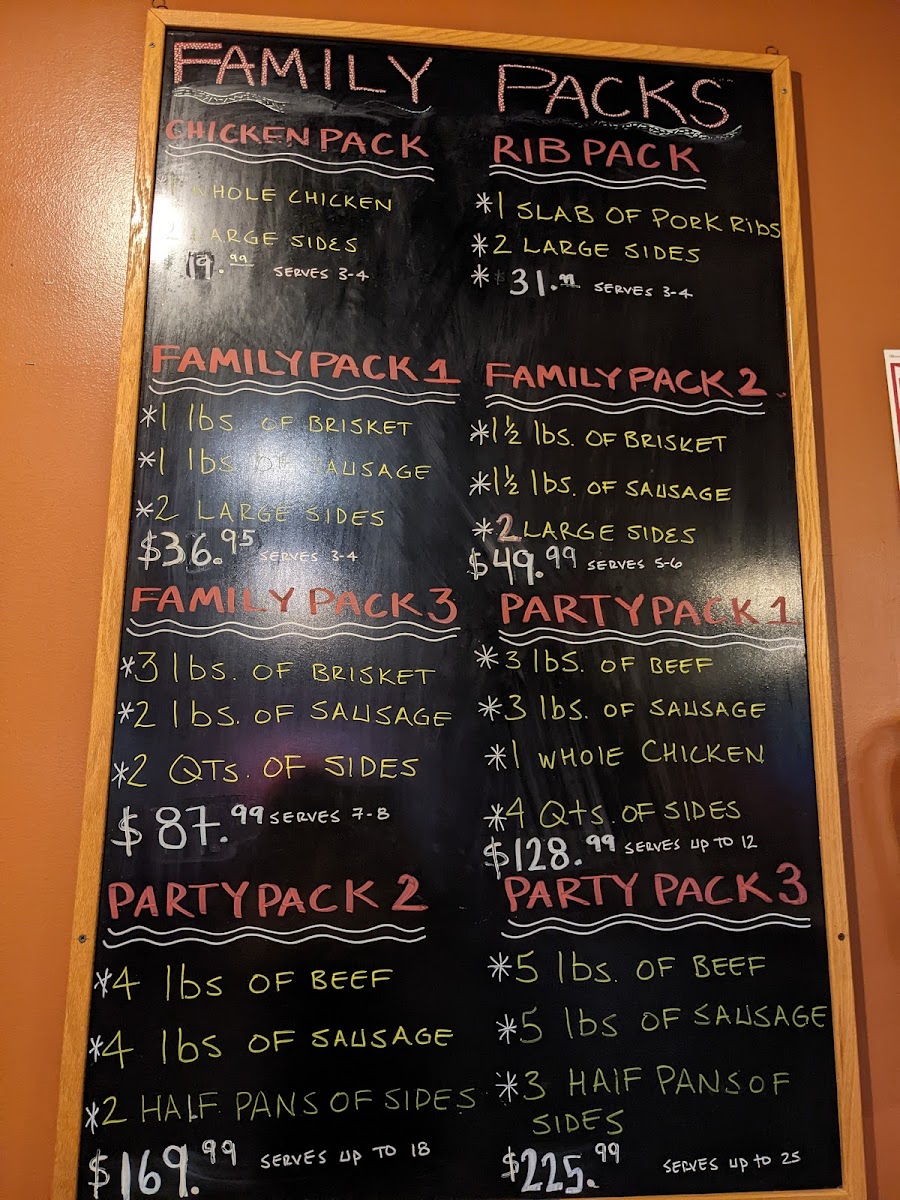 FAMILY PACKS
CHICKEN PACK
WHOLE CHICKEN
LARGE SIDES
19.99 SERVES 3-4
RIB PACK
*1 SLAB OF PORK RIBS
*2 LARGE SIDES
* $31.99 SERVES 3-4
FAMILY PACK 1
*1 lbs. OF BRISKET
*1 lbs OF SAUSAGE
*2 LARGE SIDES
$36.95 SERVES 3-4
FAMILY PACK 2
*1½ lbs. OF BRISKET
*1½ lbs. OF SAUSAGE
*2 LARGE SIDES
$49.99 SERVES 5-6
FAMILY PACK 3
*3 lbs. OF BRISKET
*2 lbs. OF SAUSAGE
*2 QTs. OF SIDES
$87.99 SERVES 7-8
PARTY PACK 1
*3 lbs. OF BEEF
*3 lbs. OF SAUSAGE
*1 WHOlE CHICKEN
*4 Qts. OF SIDES
$128.99 SERVES UP TO 12
PARTY PACK 2
*4 lbs OF BEEF
*4 lbs OF SAUSAGE
*2 HALF PANS OF SIDES
$169.99 SERVES UP TO 18
PARTY PACK 3
*5 lbs. OF BEEF
*5 lbs OF SAUSAGE
*3 HAlF PANS OF
SIDES
$225.99 SERVES UP to 25